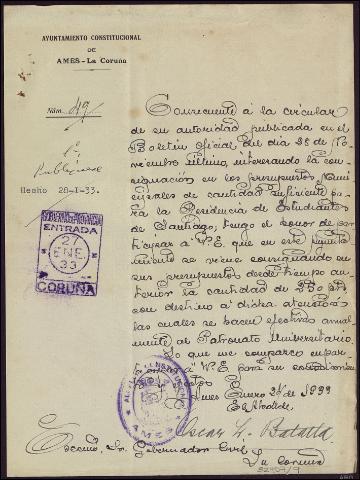 AYUNTAMIENTO CONSTITUCIONAL
DE
AMES - La Coruña
Núm. 49
Hecho 28-I-33.
GOBIERNO DE PROVINCIA
ENTRADA
27
ENE
33
CORUÑA
Consecuente á la circular
de su autoridad publicada en el
Boletin Oficial del dia 25 de No-
viembre último, interesando la con-
signación en los presupuestos Muni-
cipales de cantidad suficiente pa-
ra la Residencia de Estudiantes
de Santiago, tengo el honor de par-
ticipar á V.E. que en este Ayunta-
miento se viene consignando en
sus presupuestos desde tiempo an-
terior la cantidad de
con destino á dicha atención
las cuales se hacen efectivas anual-
mente al Patronato Universitario.
Lo que me complazco en par-
á V.E. para su
Ames Enero 24 de 1933
El Alcalde,
AMES
Oscar Batalla
Excmo. Sr. Gobernador Civil
La Coruña